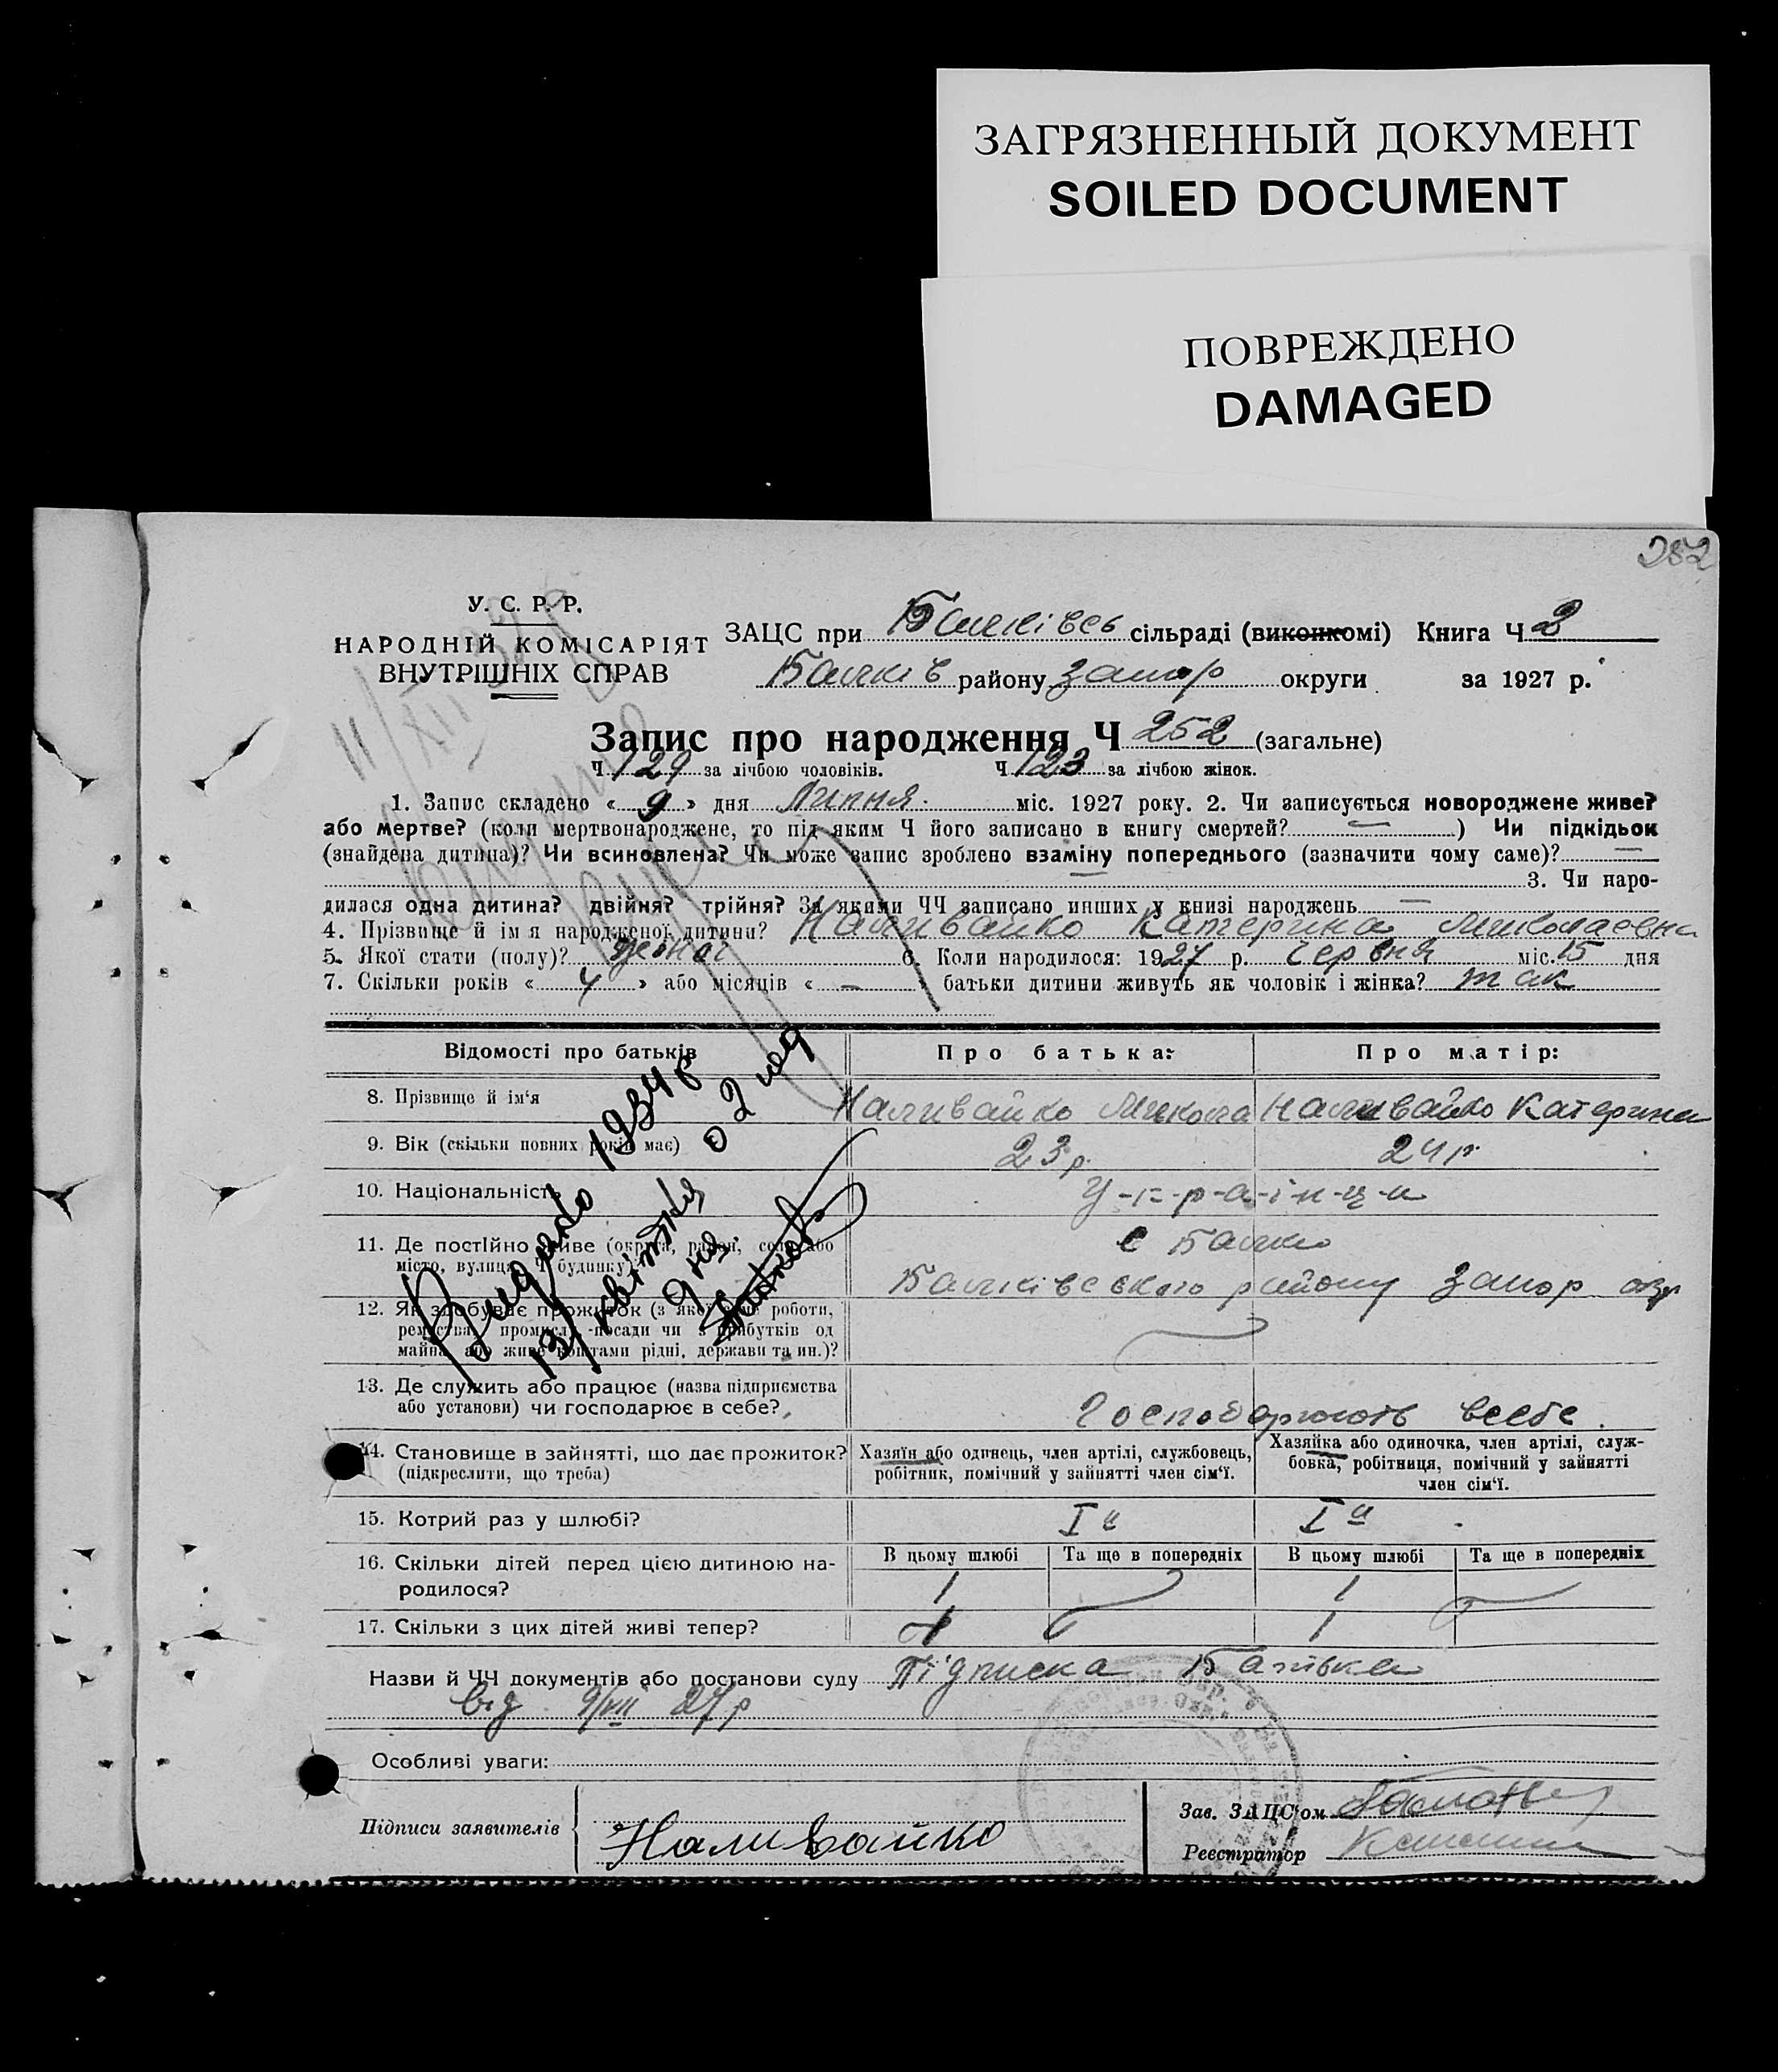 ЗАГРЯЗНЕННЫЙ ДОКУМЕНТ
SOILED DOCUMENT
ПОВРЕЖДЕНО
DAMAGED
252
У. С. Р. Р.
НАРОДНІЙ КОМІСАРІЯТ
ВНУТРІШНІХ СПРАВ
ЗАЦС при Балківсь сільраді (виконкомі) Книга Ч 2
Балків району Запор округи за 1927 р.
Запис про народження Ч 252 (загальне)
Ч 129 за лічбою чоловіків. Ч 123 за лічбою жінок.
1. Запис складено « 9 » дня Липня міс. 1927 року. 2. Чи записується новороджене живе?
або мертве? (коли мертвонароджене, то під яким Ч його записано в книгу смертей? — ) Чи підкідьок
(знайдена дитина)? Чи всиновлена? Чи може запис зроблено взаміну попереднього (зазначити чому саме)? —
3. Чи наро-
дилася одна дитина? двійня? трійня? За якими ЧЧ записано инших у книзі народжень —
4. Прізвище й ім я народженої дитини? Наливайко Катерина Миколаевна
5. Якої стати (полу)? жіноч 6. Коли народилося: 1927 р. Червня міс. 15 дня
7. Скільки років « 4 » або місяців « - » батьки дитини живуть як чоловік і жінка? так
Відомості про батьків Про батька: Про матір:
8. Прізвище й ім'я Наливайко Микола Наливайко Катерина
9. Вік (скільки повних років має) 23 р. 24 р.
10. Національність У-к-р-а-ї-н-ц-и
11. Де постійно живе (округа, район, село або с Балки
місто, вулиця, Ч будинку)? Балківського району Запор окр
12. Як здобуває прожиток (з якої саме роботи,
ремества, промислу, посади чи з прибутків од
майна, або живе коштами рідні, держави та ин.)?
13. Де служить або працює (назва підприємства
або установи) чи господарює в себе? Господарюють всебе.
14. Становище в зайнятті, що дає прожиток? Хазяїн або одинець, член артілі, службовець, Хазяйка або одиночка, член артілі, служ-
(підкреслити, що треба) робітник, помічний у зайнятті член сім'ї. бовка, робітниця, помічний у зайнятті
член сім'ї.
15. Котрий раз у шлюбі? I й I й
16. Скільки дітей перед цією дитиною на- В цьому шлюбі Та ще в попередніх В цьому шлюбі Та ще в попередніх
родилося? 1 1
17. Скільки з цих дітей живі тепер? 1 1
Назви й ЧЧ документів або постанови суду Підписка Батька
від 9/VII 27 р
Особливі уваги:
Підписи заявителів Наливайко
Зав. ЗАЦС'ом
Реєстратор
11/XII
Видано 1934 р
13/квітня
9 дня